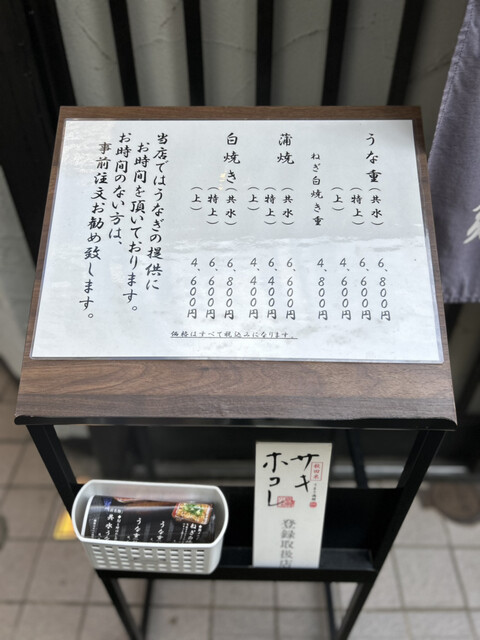 うな重（共水） 6、800円
（特上） 6、600円
（上） 4、600円
ねぎ白焼き重 4、800円
蒲焼（共水） 6、600円
（特上） 6、400円
（上） 4、400円
白焼き（共水） 6、800円
（特上） 6、600円
（上） 4、600円
当店ではうなぎの提供に
お時間を頂いております。
お時間のない方は、
事前注文お勧め致します。
価格はすべて税込みになります。
秋田米
サキ
ホコレ
登録取扱店
ねぎの
うな重
うな重
共水う